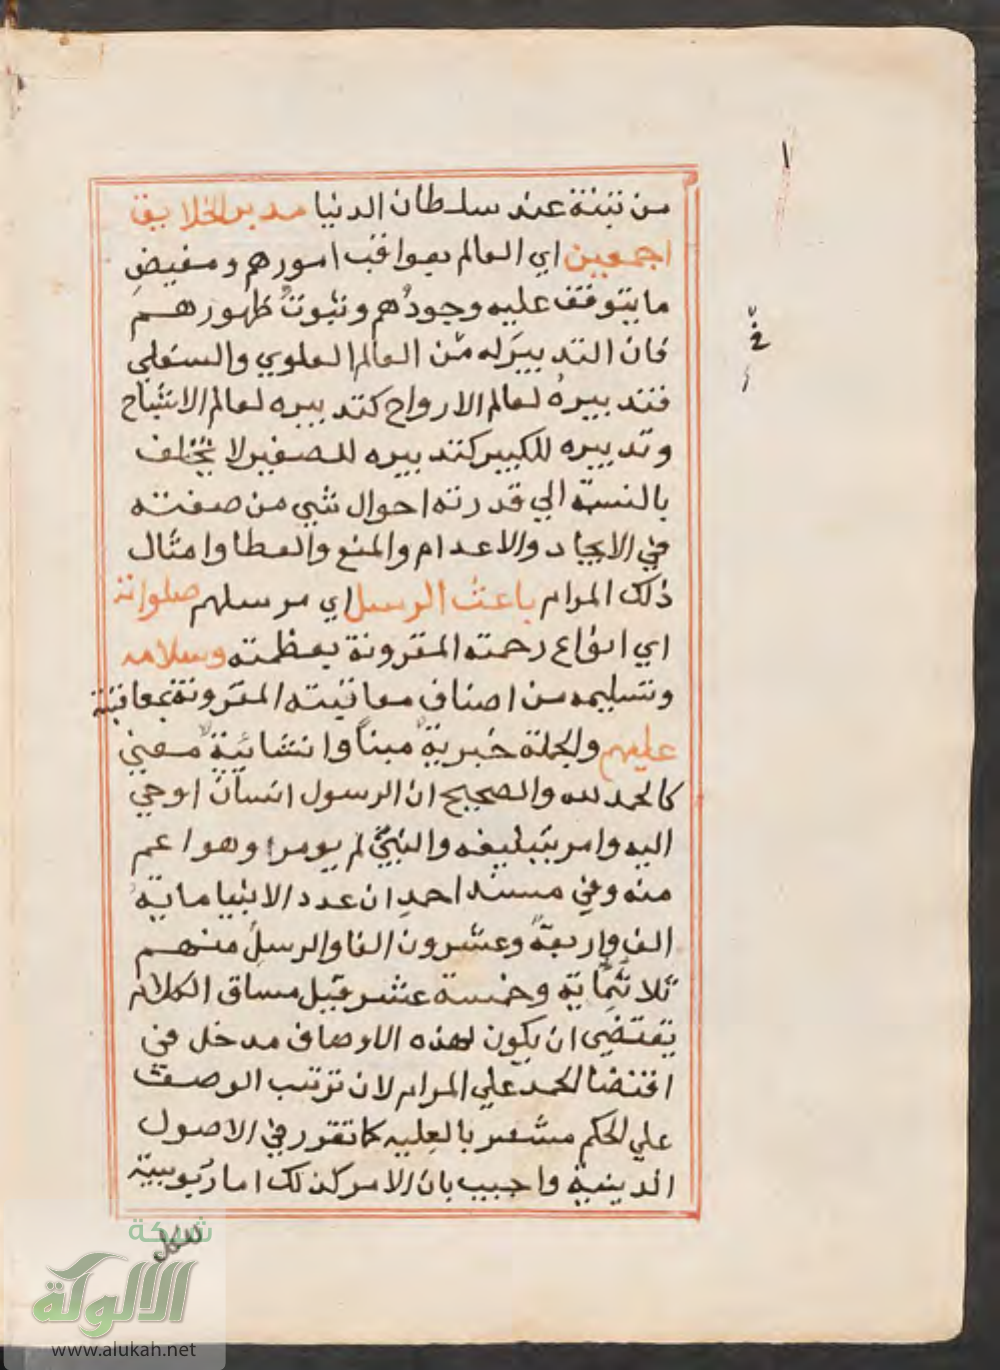 من تبنته عند سلطان الدنيا مدبر الخلايق
اجمعين اي العالم بعواقب امورهم ومفيض
ما يتوقف عليه وجودهم وثبوت ظهورهم
فان التدبير له من العالم العلوي والسفلي
فتدبيره لعالم الارواح كتدبيره لعالم الاشباح
وتدبيره للكبير كتدبيره للصغير لا تختلف
بالنسبة الي قدرته احوال شي من صفته
في الايجاد والاعدام والمنع والعطا وامثال
ذلك المرام باعث الرسل اي مرسلهم صلواته
اي انواع رحمته المقرونة بعظمته وسلامه
وتسليمه من اصناف معاتبته المقرونة بمعاقبته
عليهم والجملة خبرية مبناً وانشائية معني
كالحمد لله والصحيح ان الرسول انسان اوحي
اليه وامر بتبليغه والنبي لم يومر وهو اعم
منه وفي مسند احمد ان عدد الانبيا ماية
الف واربعة وعشرون الفا والرسل منهم
ثلاثماية وخمسة عشر قيل مساق الكلام
يقتضي ان يكون لهذه الاوصاف مدخل في
اقتضا الحمد علي المرام لان ترتب الوصف
علي الحكم مشعر بالعلية كما تقرر في الاصول
الدينية واجيب بان الامر كذلك اما ربوبية
شبكة
الألوكة
www.alukah.net